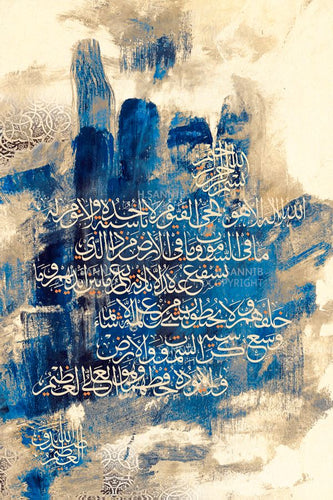 بسم الله الرحمن الرحيم
الله لا إله إلا هو الحي القيوم لا تأخذه سنة ولا نوم له
ما في السموات وما في الأرض من ذا الذي
يشفع عنده إلا بإذنه يعلم ما بين أيديهم وما
خلفهم ولا يحيطون بشيء من علمه إلا بما شاء
وسع كرسيه السموات والأرض
ولا يؤده حفظهما وهو العلي العظيم
صدق الله العظيم
H.SANNTB
COPYRIGHT